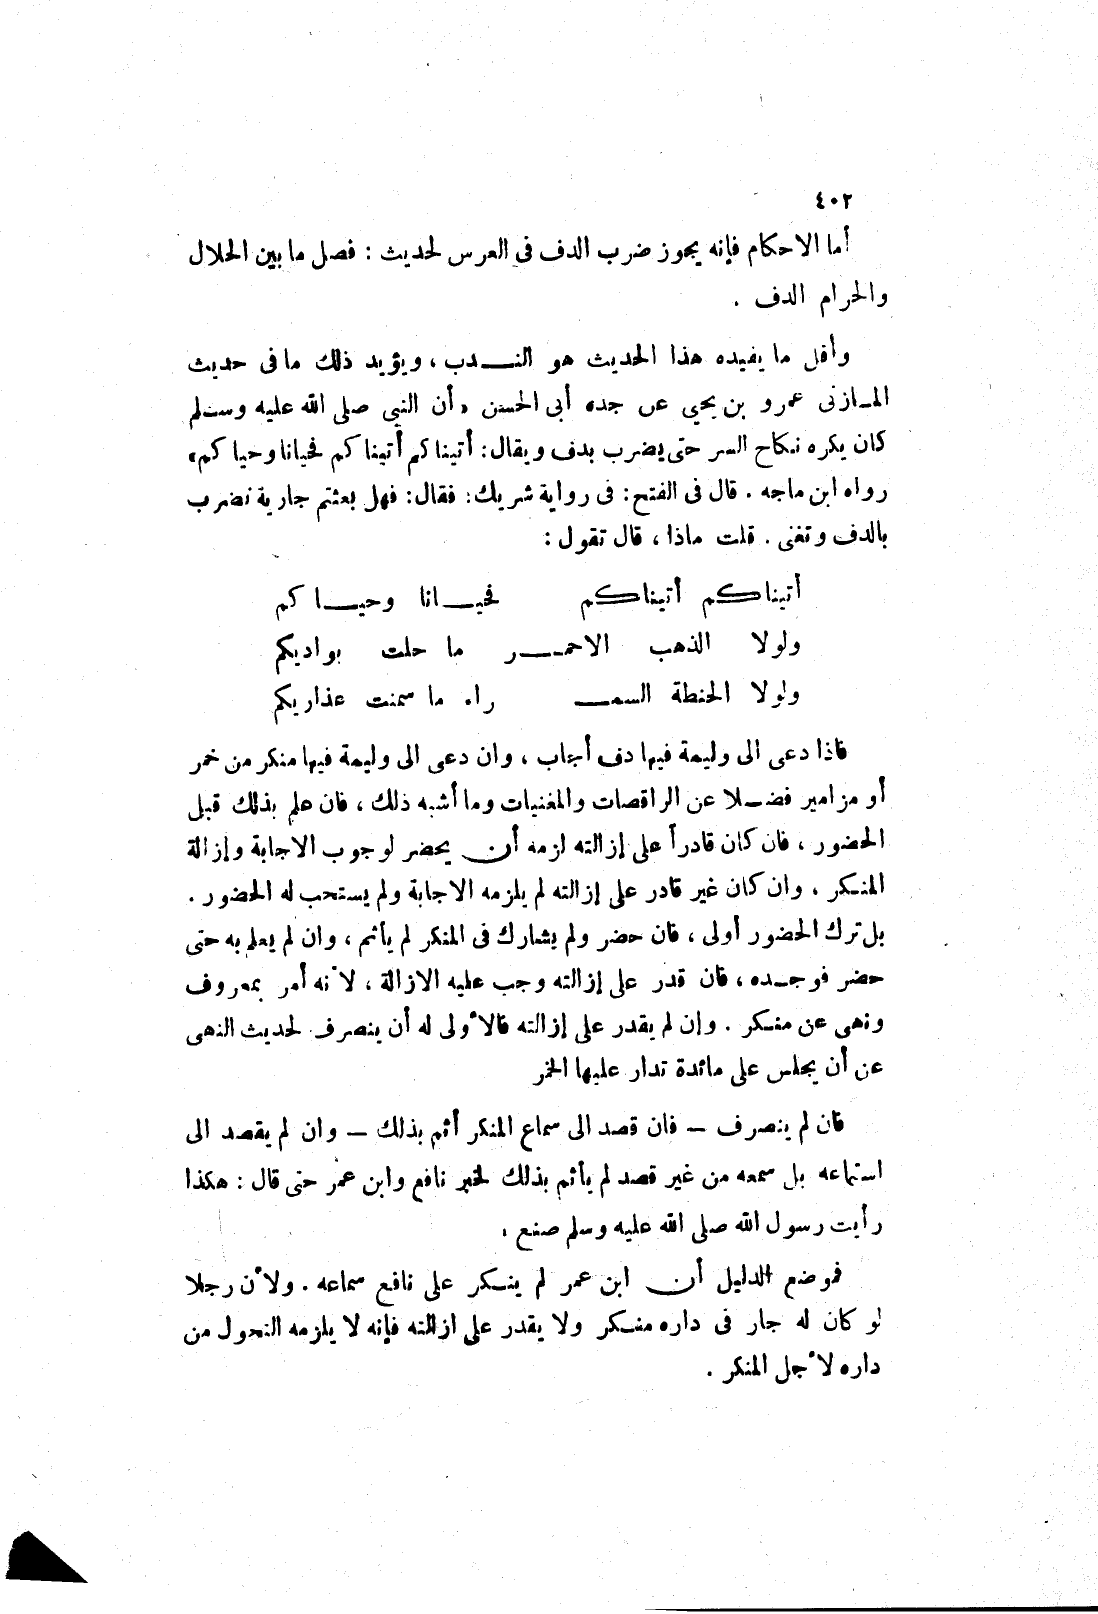 ٤٠٢
أما الاحكام فإنه يجوز ضرب الدف فى العرس لحديث : فصل ما بين الحلال
والحرام الدف .
وأقل ما يفيده هذا الحديث هو النـدب ، ويؤيد ذلك مافى حديث
المـازنى عمرو بن يحيي عن جده أبى الحسن « أن النبى صلى الله عليه وسـلم
كان يكره نكاح السر حتى يضرب بدف ويقال : أتيناكم أتيناكم فحيانا وحياكم»
رواه ابن ماجه . قال فى الفتح : فى رواية شريك : فقال : فهل بعثتم جارية تضرب
بالدف وتغنى . قلت ماذا ، قال تقول :
أتيناكـم أتيناكـم فحيـانا وحيـاكم
ولولا الذهب الاحمـر ما حلت بواديكم
ولولا الحنطة السمـ راء ما سمنت عذاريكم
فاذا دعى الى وليمة فيها دف أجاب ، وان دعى الى وليمة فيها منكر من خمر
أو مزامير فضـلا عن الراقصات والمغنيات وما أشبه ذلك ، فان علم بذلك قبل
الحضور ، فان كان قادراً على إزالته لزمه أن يحضر لوجوب الاجابة وإزالة
المنـكر ، وان كان غير قادر على إزالته لم يلزمه الاجابة ولم يستحب له الحضور .
بل ترك الحضور أولى ، فان حضر ولم يشارك فى المنكر لم يأثم ، وان لم يعلم به حتى
حضر فوجـده ، فان قدر على إزالته وجب عليه الازالة ، لأنه أمر بمعروف
ونهى عن منـكر . وإن لم يقدر على إزالته فالأولى له أن ينصرف لحديث النهى
عن أن يجلس على مائدة تدار عليها الخمر
فان لم ينصرف – فان قصد الى سماع المنكر أثم بذلك – وان لم يقصد الى
استماعه بل سمعه من غير قصد لم يأثم بذلك لخبر نافع وابن عمر حتى قال : هكذا
رأيت رسول الله صلى الله عليه وسلم صنع ،
فموضع الدليل أن ابن عمر لم ينـكر على نافع سماعه . ولأن رجلا
لو كان له جار فى داره منـكر ولا يقدر على ازالته فإنه لا يلزمه التحول من
داره لأجل المنكر .